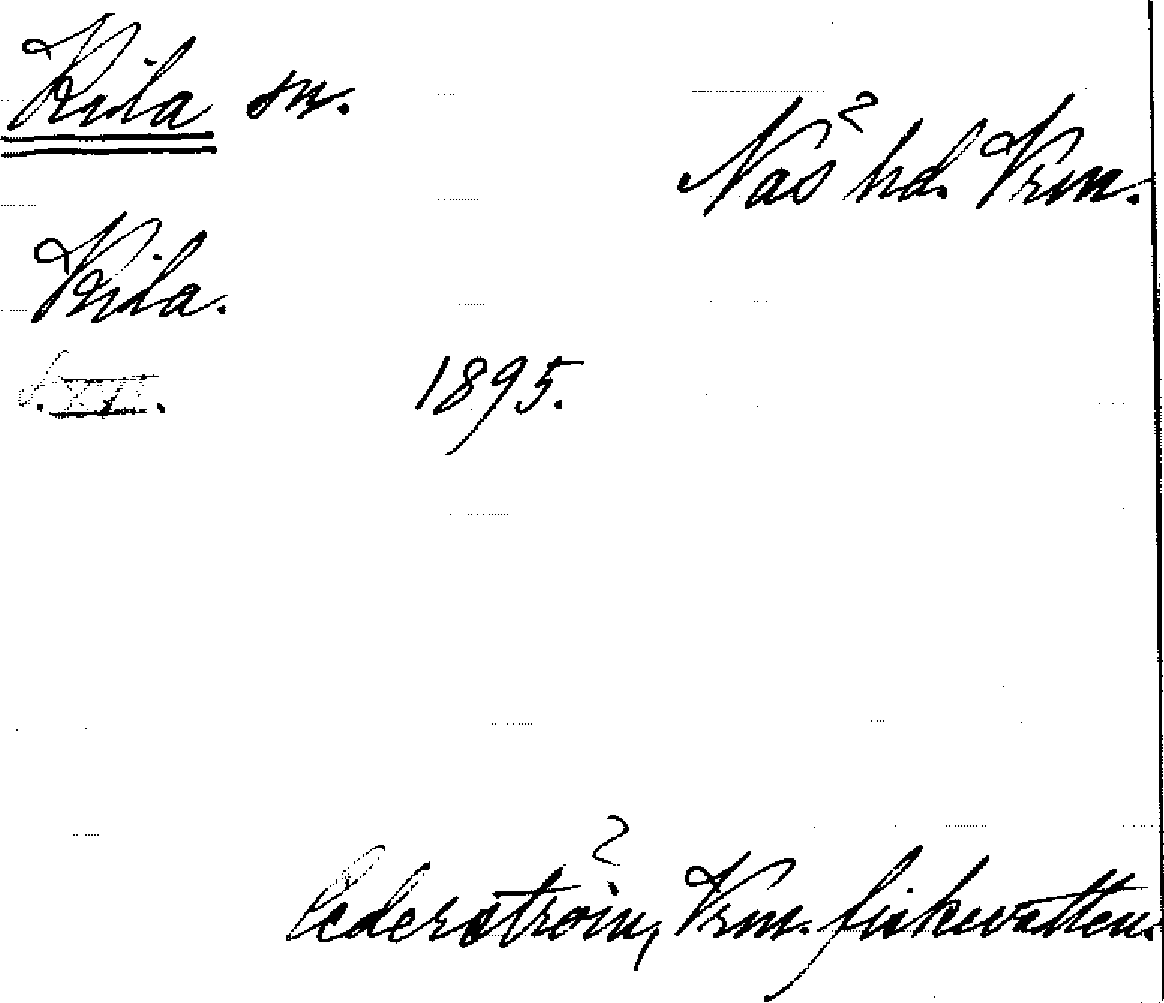 Kila sn.
Näs hd. Vrm.
Kila.
1895.
Cederström, Vrm. fiskevatten.